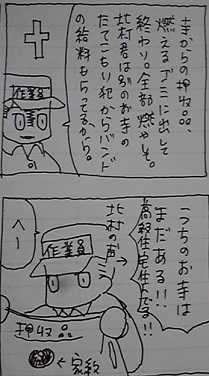 寺からの押収品、
燃えるゴミに出して
終わり。全部燃やして。
北村君は別のお寺の
たてこもり犯からバンド
の給料もらってるから。
作業員
うっちのお寺は
まだある!!
高級住宅住んでる!!
北村の声
へー
作業員
押収品
←家紋